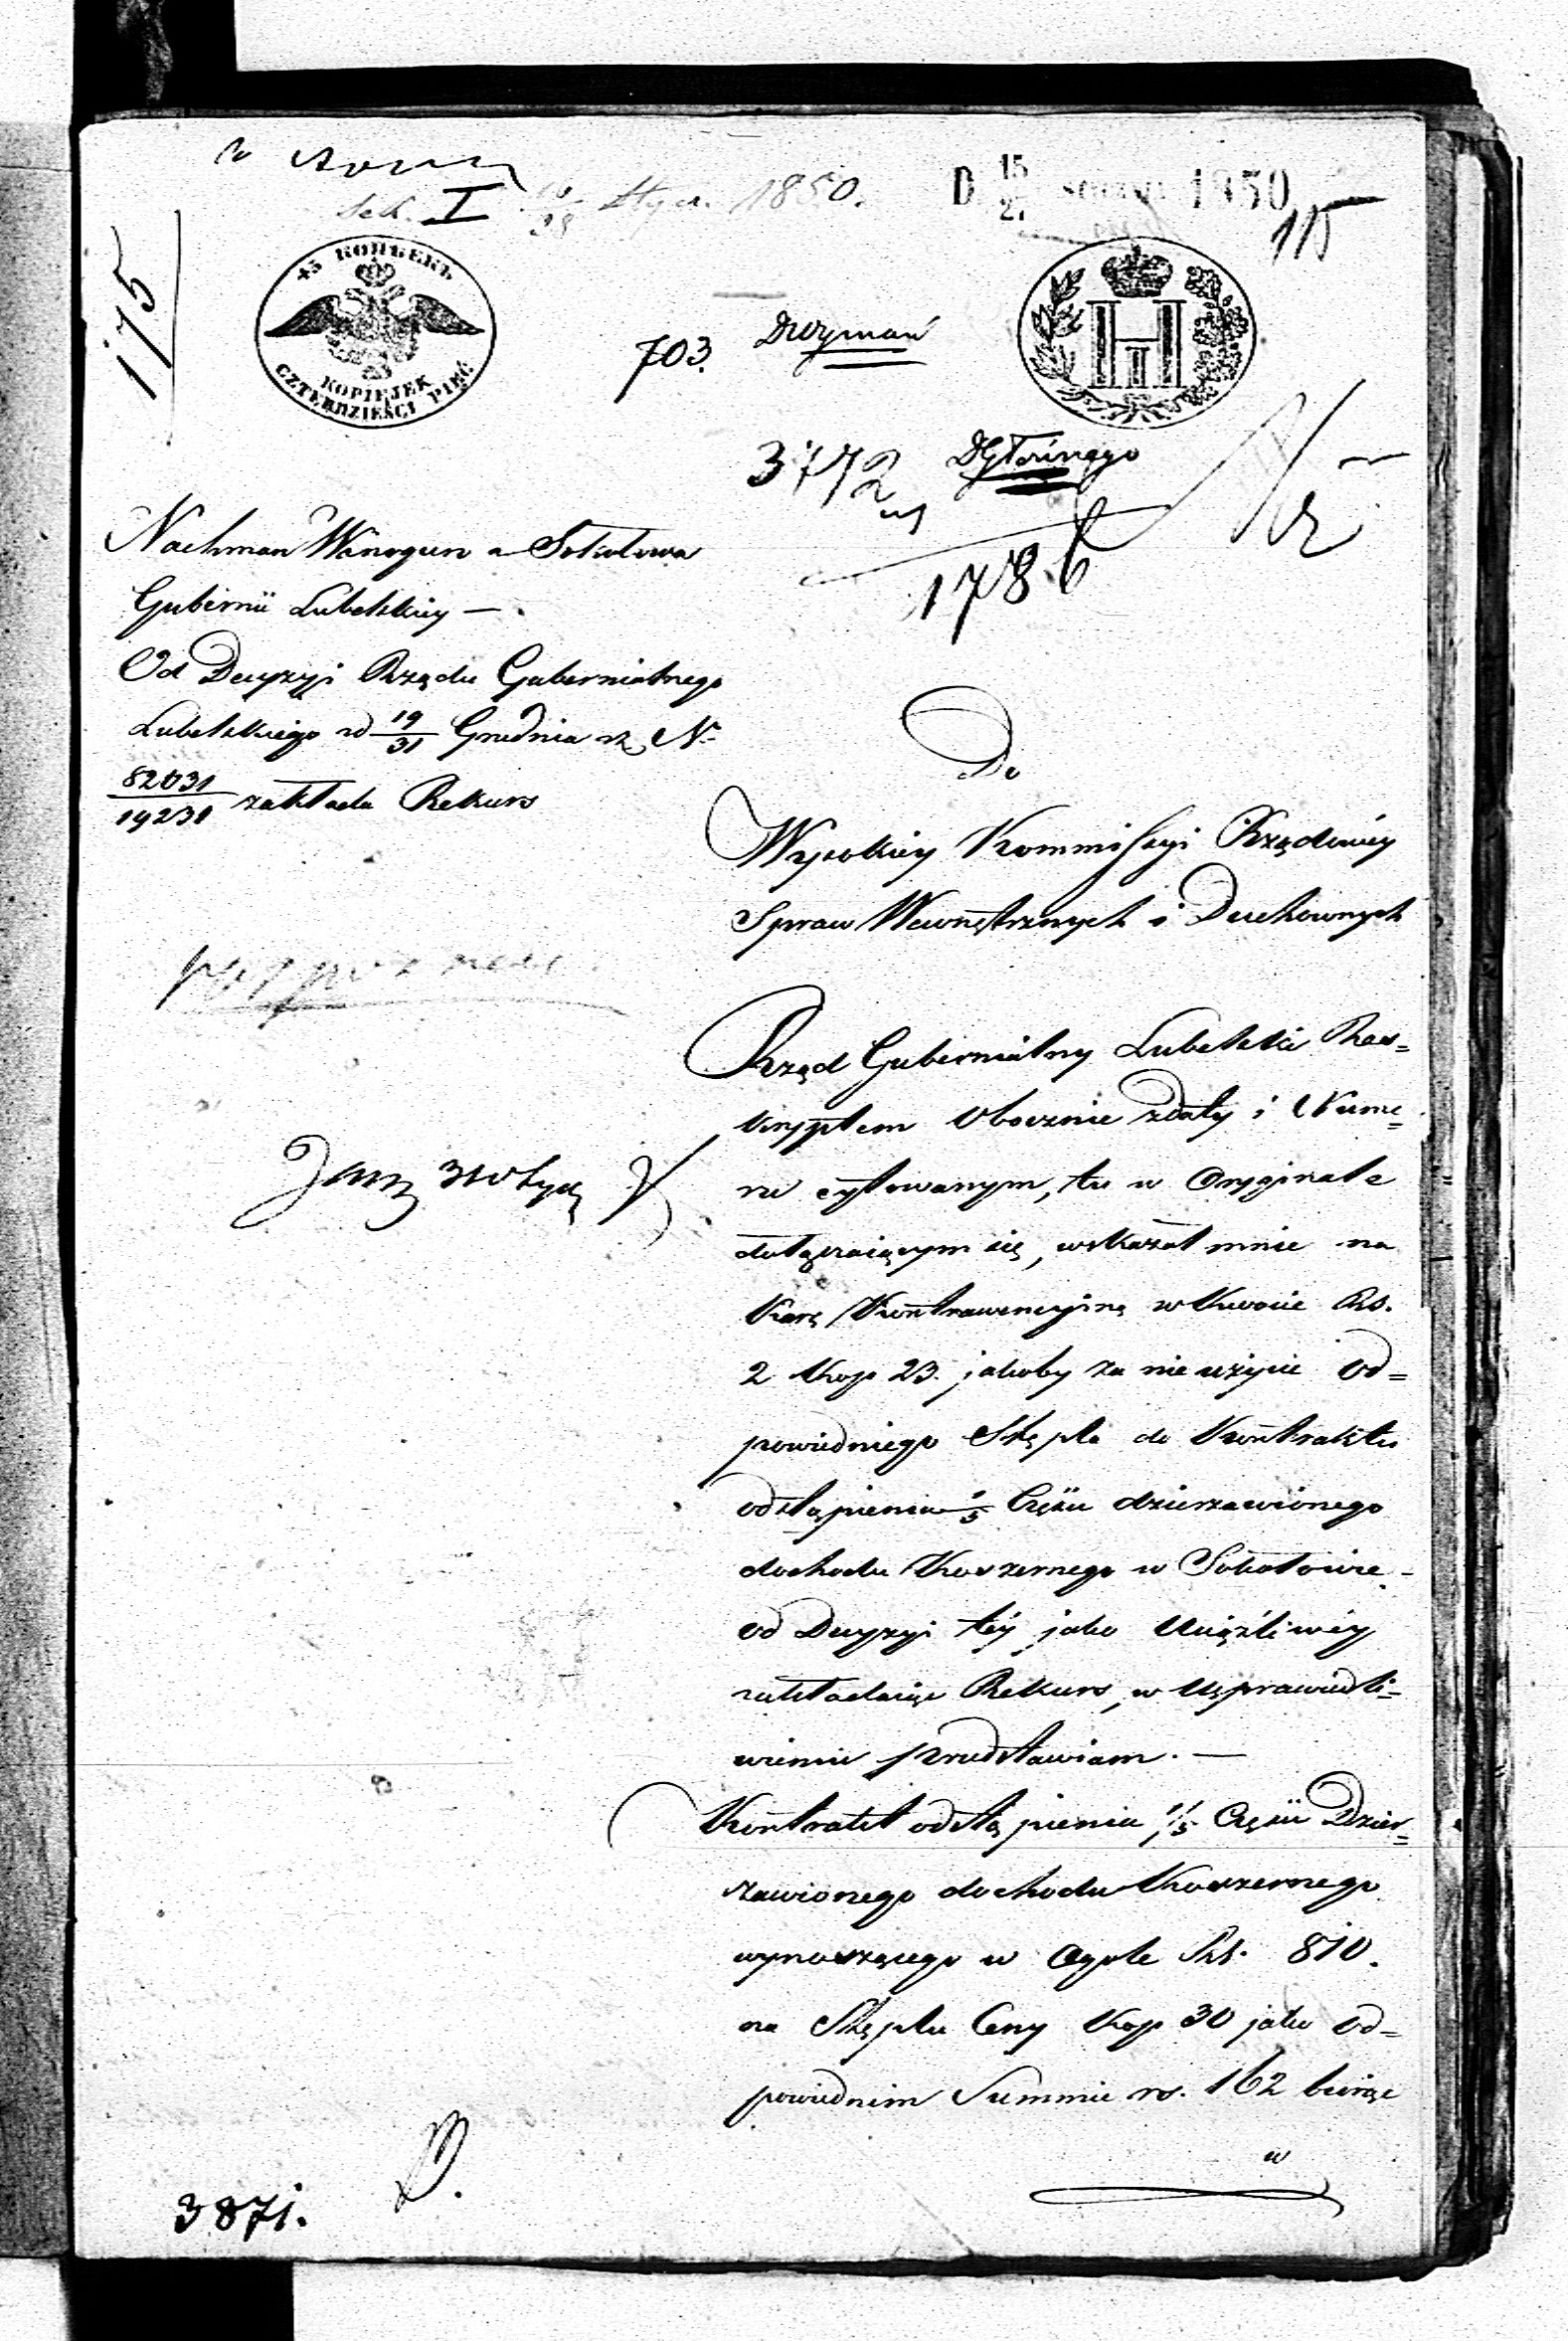 Sek. I Stycz. 1850.
D 15/27 1850
115
175
45 КОПѢЕКЪ
KOPIEJEK
CZTERDZIEŚCI PIĘĆ
H I
703.
3772
1786
Nachman Winogura z Sokołowa
Gubernii Lubelskiey —
Od Decyzyi Rządu Gubernialnego
Lubelskiego z d 19/31 Grudnia r.z. No
82031/19231 zakłada Rekurs
Do
Wysokiey Kommissyi Rządowéy
Spraw Wewnętrznych i Duchownych
Rząd Gubernialny Lubelski Res=
kryptem Obocznie z daty i Nume=
ru cytowanym, tu w Oryginale
dołączaiącym się, wskazał mnie na
Karę Kontrawencyiną w kwocie Rs.
2 kop 23. jakoby za nie użycie od=
powiedniego Stępla do Kontraktu
odstąpienia 1/5 Części dzierzawionego
dochodu Koszernego w Sokołowie -
od Decyzyi téy jako Uciążliwéy
zakładaiąc Rekurs, w Usprawiedli=
wieniu przedstawiam. —
Kontrakt odstąpienia 1/5 Części Dzier=
zawionego dochodu Koszernego
wynoszącego w Ogole Rs. 810.
na Stęplu Ceny kop 30 jako od=
powiednim Summie rs. 162 biorąc
w
3871.